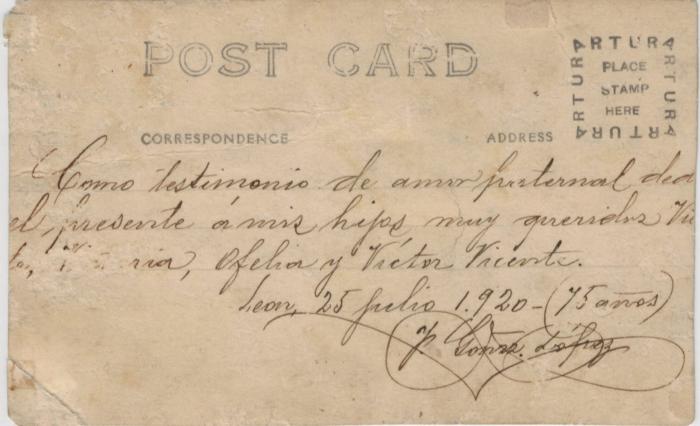 POST CARD
ARTURA
ARTURA
ARTURA
ARTURA
PLACE
STAMP
HERE
CORRESPONDENCE
ADDRESS
Como testimonio de amor paternal ded
el presente á mis hijos muy queridos Vi
ria, Ofelia y Víctor Vicente.
Leon, 25 julio 1.920-(75 años)
López